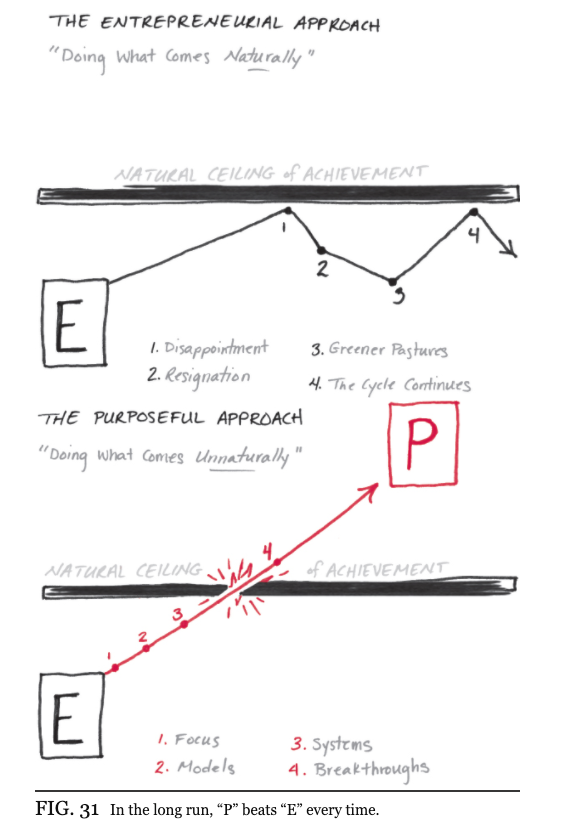 THE ENTREPRENEURIAL APPROACH
"Doing What Comes Naturally"
NATURAL CEILING of ACHIEVEMENT
1
2
3
4
E
1. Disappointment
2. Resignation
3. Greener Pastures
4. The Cycle Continues
THE PURPOSEFUL APPROACH
"Doing What Comes Unnaturally"
P
NATURAL CEILING of ACHIEVEMENT
4
3
2
1
E
1. Focus
2. Models
3. Systems
4. Breakthroughs
FIG. 31 In the long run, “P” beats “E” every time.